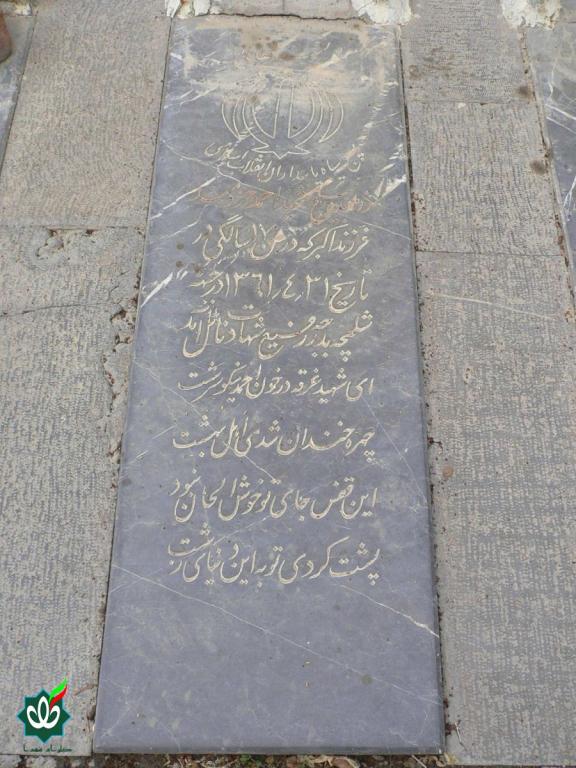 پاسداران انقلاب اسلامی
شهید احمد
فرزند اکبر که در سن ۱۷ سالگی در
تاریخ ۳۱ر۴ر۱۳۶۱ در جبهه
شلمچه بدرجه رفیع شهادت نائل آمد
ای شهید غرقه در خون احمد نیکو سرشت
چهره خندان شدی اهل بهشت
این قفس جای تو خوش الحان نبود
پشت کردی تو به این دنیای زشت